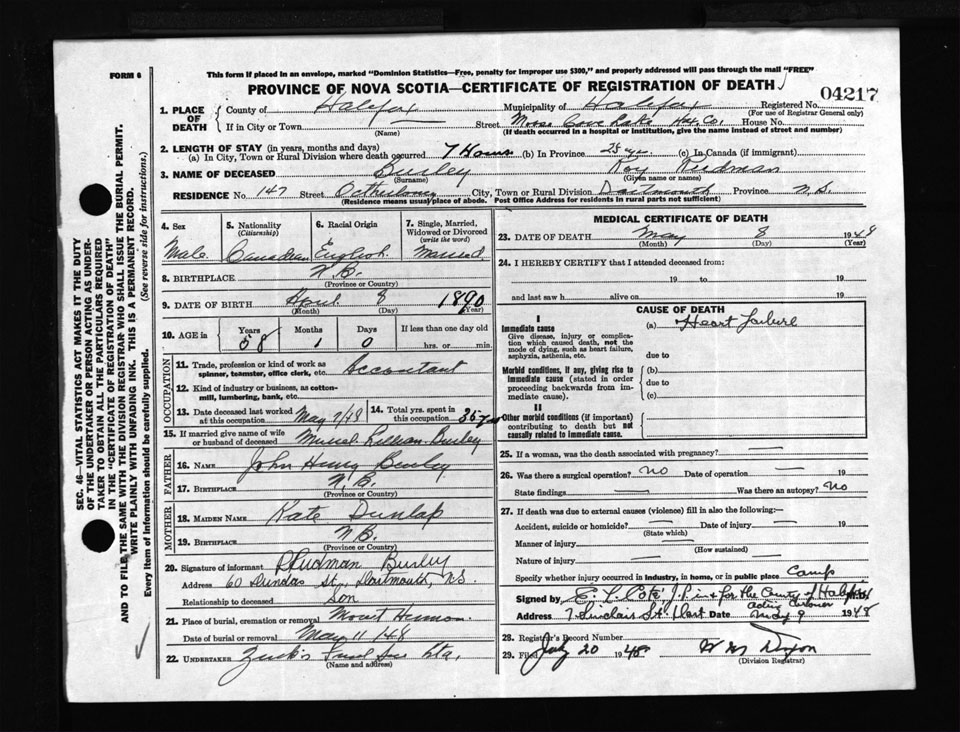 FORM 6
This form if placed in an envelope, marked "Dominion Statistics—Free, penalty for improper use $300," and properly addressed will pass through the mail "FREE"
PROVINCE OF NOVA SCOTIA—CERTIFICATE OF REGISTRATION OF DEATH
04217
1. PLACE OF DEATH
County of Halifax Municipality of Halifax Registered No.
(For use of Registrar General only)
If in City or Town — Street Moose Cove Lake Hfx Co. House No.
(Name) (If death occurred in a hospital or institution, give the name instead of street and number)
2. LENGTH OF STAY (in years, months and days)
(a) In City, Town or Rural Division where death occurred 7 Hours (b) In Province 25 yrs. (c) In Canada (if immigrant)
3. NAME OF DECEASED Burley Roy Rudman
(Surname) (Given name or names)
RESIDENCE No. 147 Street City, Town or Rural Division Dartmouth Province N.S.
(Residence means usual place of abode. Post Office Address for residents in rural parts not sufficient)
4. Sex Male
5. Nationality (Citizenship) Canadian
6. Racial Origin English
7. Single, Married, Widowed or Divorced (write the word) Married
8. BIRTHPLACE N.B.
(Province or Country)
9. DATE OF BIRTH April 8 1890
(Month) (Day) (Year)
10. AGE in Years 58 Months 1 Days 0 If less than one day old hrs. or min.
OCCUPATION
11. Trade, profession or kind of work as spinner, teamster, office clerk, etc. Accountant
12. Kind of industry or business, as cotton-mill, lumbering, bank, etc.
13. Date deceased last worked at this occupation May 7/48
14. Total yrs. spent in this occupation 36 yrs
15. If married give name of wife or husband of deceased Muriel Lillian Burley
FATHER
16. NAME John Henry Burley
17. BIRTHPLACE N.B.
(Province or Country)
MOTHER
18. MAIDEN NAME Kate Dunlap
19. BIRTHPLACE N.B.
(Province or Country)
20. Signature of informant R Rudman Burley
Address 60 Dundas St., Dartmouth, N.S.
Relationship to deceased Son
21. Place of burial, cremation or removal Mount Hermon
Date of burial or removal May 11 1948
22. UNDERTAKER Zink's Ltd.
(Name and address)
MEDICAL CERTIFICATE OF DEATH
23. DATE OF DEATH May 8 1948
(Month) (Day) (Year)
24. I HEREBY CERTIFY that I attended deceased from:
19 to 19
and last saw h alive on 19
CAUSE OF DEATH
I
Immediate cause (a) Heart failure
Give disease, injury or complication which caused death, not the mode of dying, such as heart failure, asphyxia, asthenia, etc.
due to
Morbid conditions, if any, giving rise to immediate cause (stated in order proceeding backwards from immediate cause).
(b)
due to
(c)
II
Other morbid conditions (if important) contributing to death but not causally related to immediate cause.
25. If a woman, was the death associated with pregnancy? —
26. Was there a surgical operation? no Date of operation — 19
State findings — Was there an autopsy? No
27. If death was due to external causes (violence) fill in also the following:—
Accident, suicide or homicide? — Date of injury — 19
(State which)
Manner of injury —
(How sustained)
Nature of injury —
Specify whether injury occurred in industry, in home, or in public place Camp
Signed by J.P. in & for the County of Halifax
Acting Coroner
Address 7 Sinclair St. Dart Date May 9 1948
28. Registrar's Record Number
29. Filed July 20 1948 W M Dixon
(Division Registrar)
SEC. 46—VITAL STATISTICS ACT MAKES IT THE DUTY
OF THE UNDERTAKER OR PERSON ACTING AS UNDER-
TAKER TO OBTAIN ALL THE PARTICULARS REQUIRED
IN THE "CERTIFICATE OF REGISTRATION OF DEATH"
AND TO FILE THE SAME WITH THE DIVISION REGISTRAR WHO SHALL ISSUE THE BURIAL PERMIT.
WRITE PLAINLY WITH UNFADING INK. THIS IS A PERMANENT RECORD.
Every item of Information should be carefully supplied. (See reverse side for instructions.)